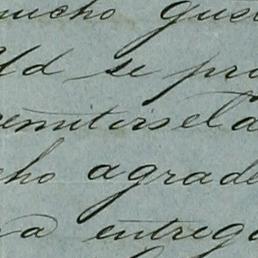 mucho gus
Ud se pro
remitirsela
cho agrade
a entreg